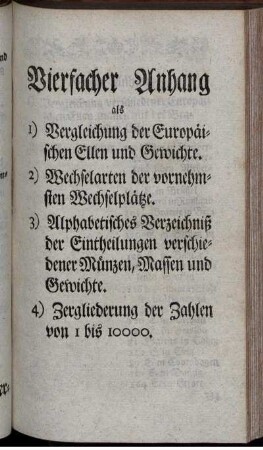 Vierfacher Anhang
als
1) Vergleichung der Europäi-
schen Ellen und Gewichte.
2) Wechselarten der vornehm-
sten Wechselplätze.
3) Alphabetisches Verzeichniß
der Eintheilungen verschie-
dener Münzen, Massen und
Gewichte.
4) Zergliederung der Zahlen
von 1 bis 10000.